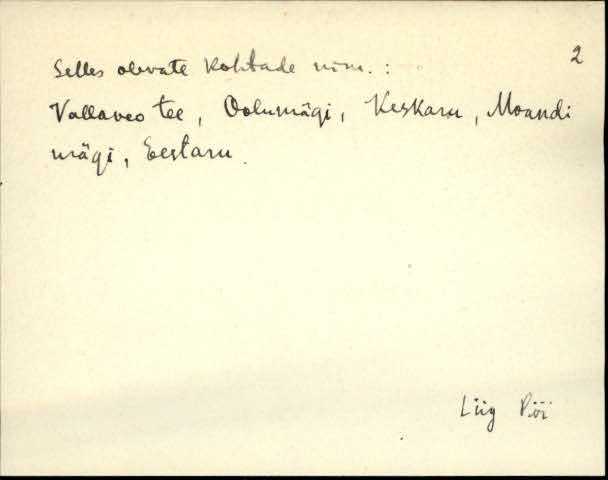 2
Selles olevate kohtade nim. :
Vallaveo tee, Oolumägi, Keskaru, Moandi
mägi, Eestaru.
Liig Pöi